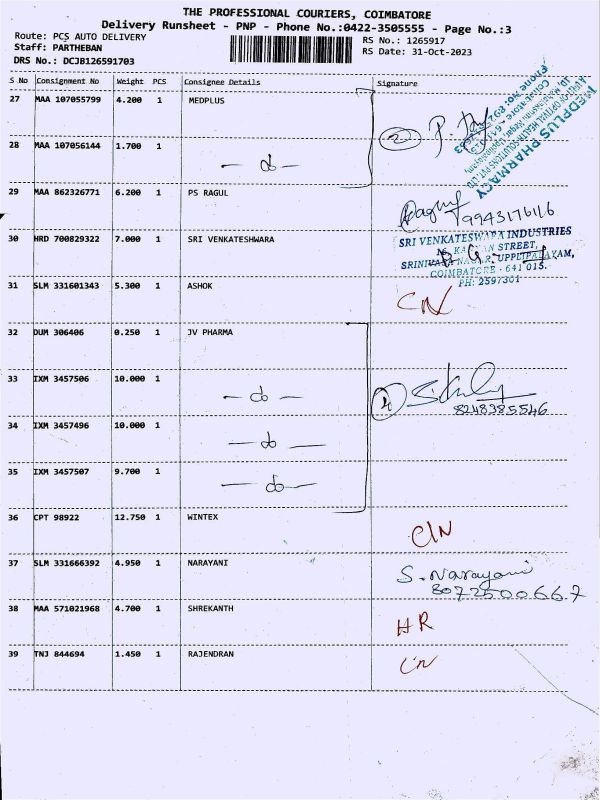 THE PROFESSIONAL COURIERS, COIMBATORE
Delivery Runsheet - PNP - Phone No.:0422-3505555 - Page No.:3
Route: PCS AUTO DELIVERY RS No.: 1265917
Staff: PARTHEBAN RS Date: 31-Oct-2023
DRS No.: DCJB126591703
S No Consignment No Weight PCS Consignee Details Signature
27 MAA 107055799 4.200 1 MEDPLUS
MEDPLUS PHARMACY
2
28 MAA 107056144 1.700 1
- do -
29 MAA 862326771 6.200 1 PS RAGUL
Ragul
9943176116
30 HRD 700829322 7.000 1 SRI VENKATESHWARA
SRI VENKATESWARA INDUSTRIES
STREET,
SRINIVASA NAGAR, UPPLIPALAYAM,
COIMBATORE - 641 015.
PH: 2597301
31 SLM 331601343 5.300 1 ASHOK
CN
32 DUM 306406 0.250 1 JV PHARMA
33 IXM 3457506 10.000 1
- do -
4
8248385546
34 IXM 3457496 10.000 1
- do -
35 IXM 3457507 9.700 1
- do -
36 CPT 98922 12.750 1 WINTEX
CN
37 SLM 331666392 4.950 1 NARAYANI
S. Narayani
8072500667
38 MAA 571021968 4.700 1 SHREKANTH
HR
39 TNJ 844694 1.450 1 RAJENDRAN
CN